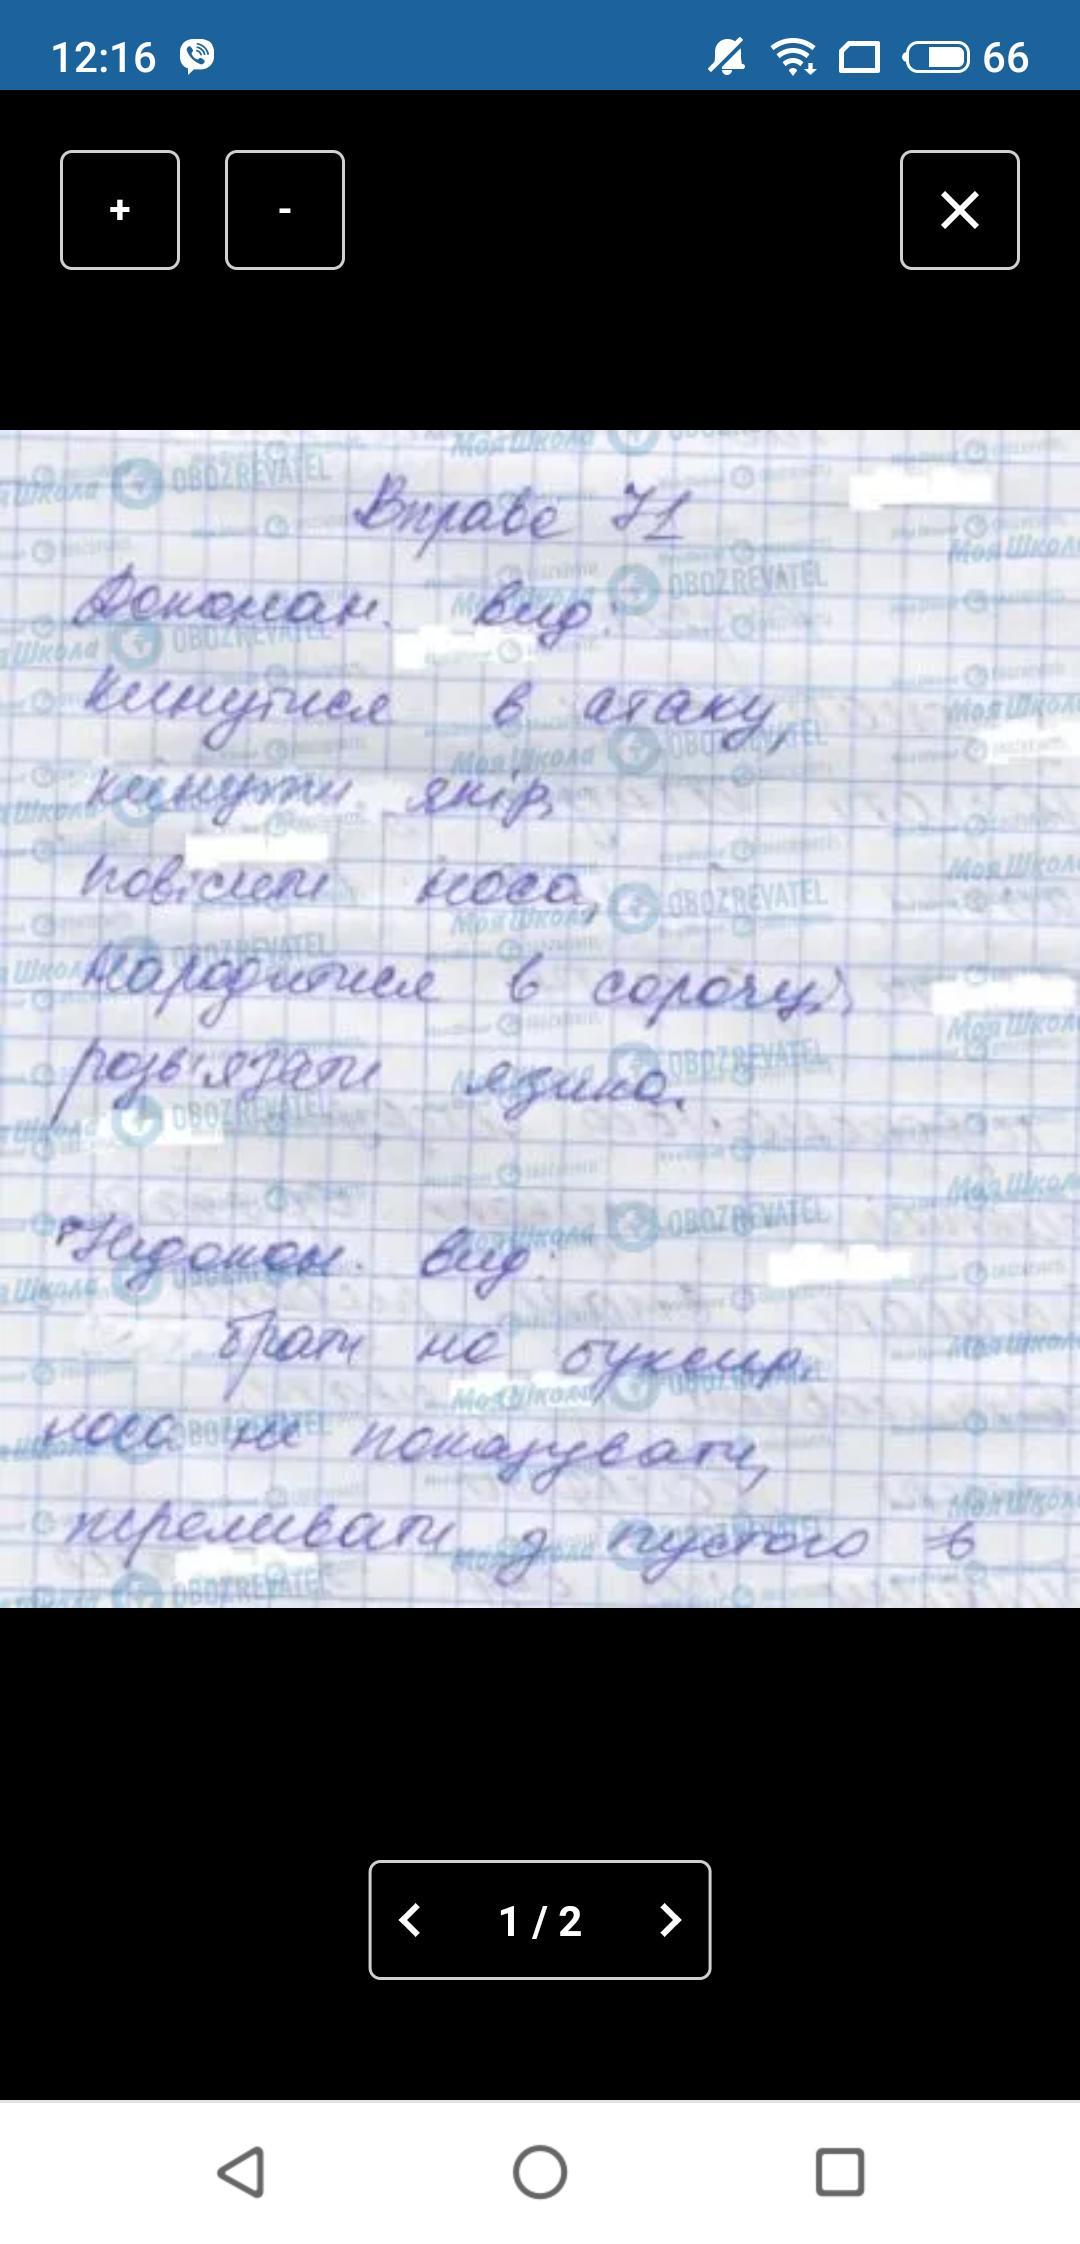 12:16 66
+ -
Вправа 71
Доконан. вид:
кинутися в атаку,
кинути якір,
повісити носа,
народитися в сорочці,
розв'язати язика.
Недокон. вид:
брати на буксир,
носа не показувати,
переливати з пустого в
OBOZREVATEL
Моя Школа
1 / 2